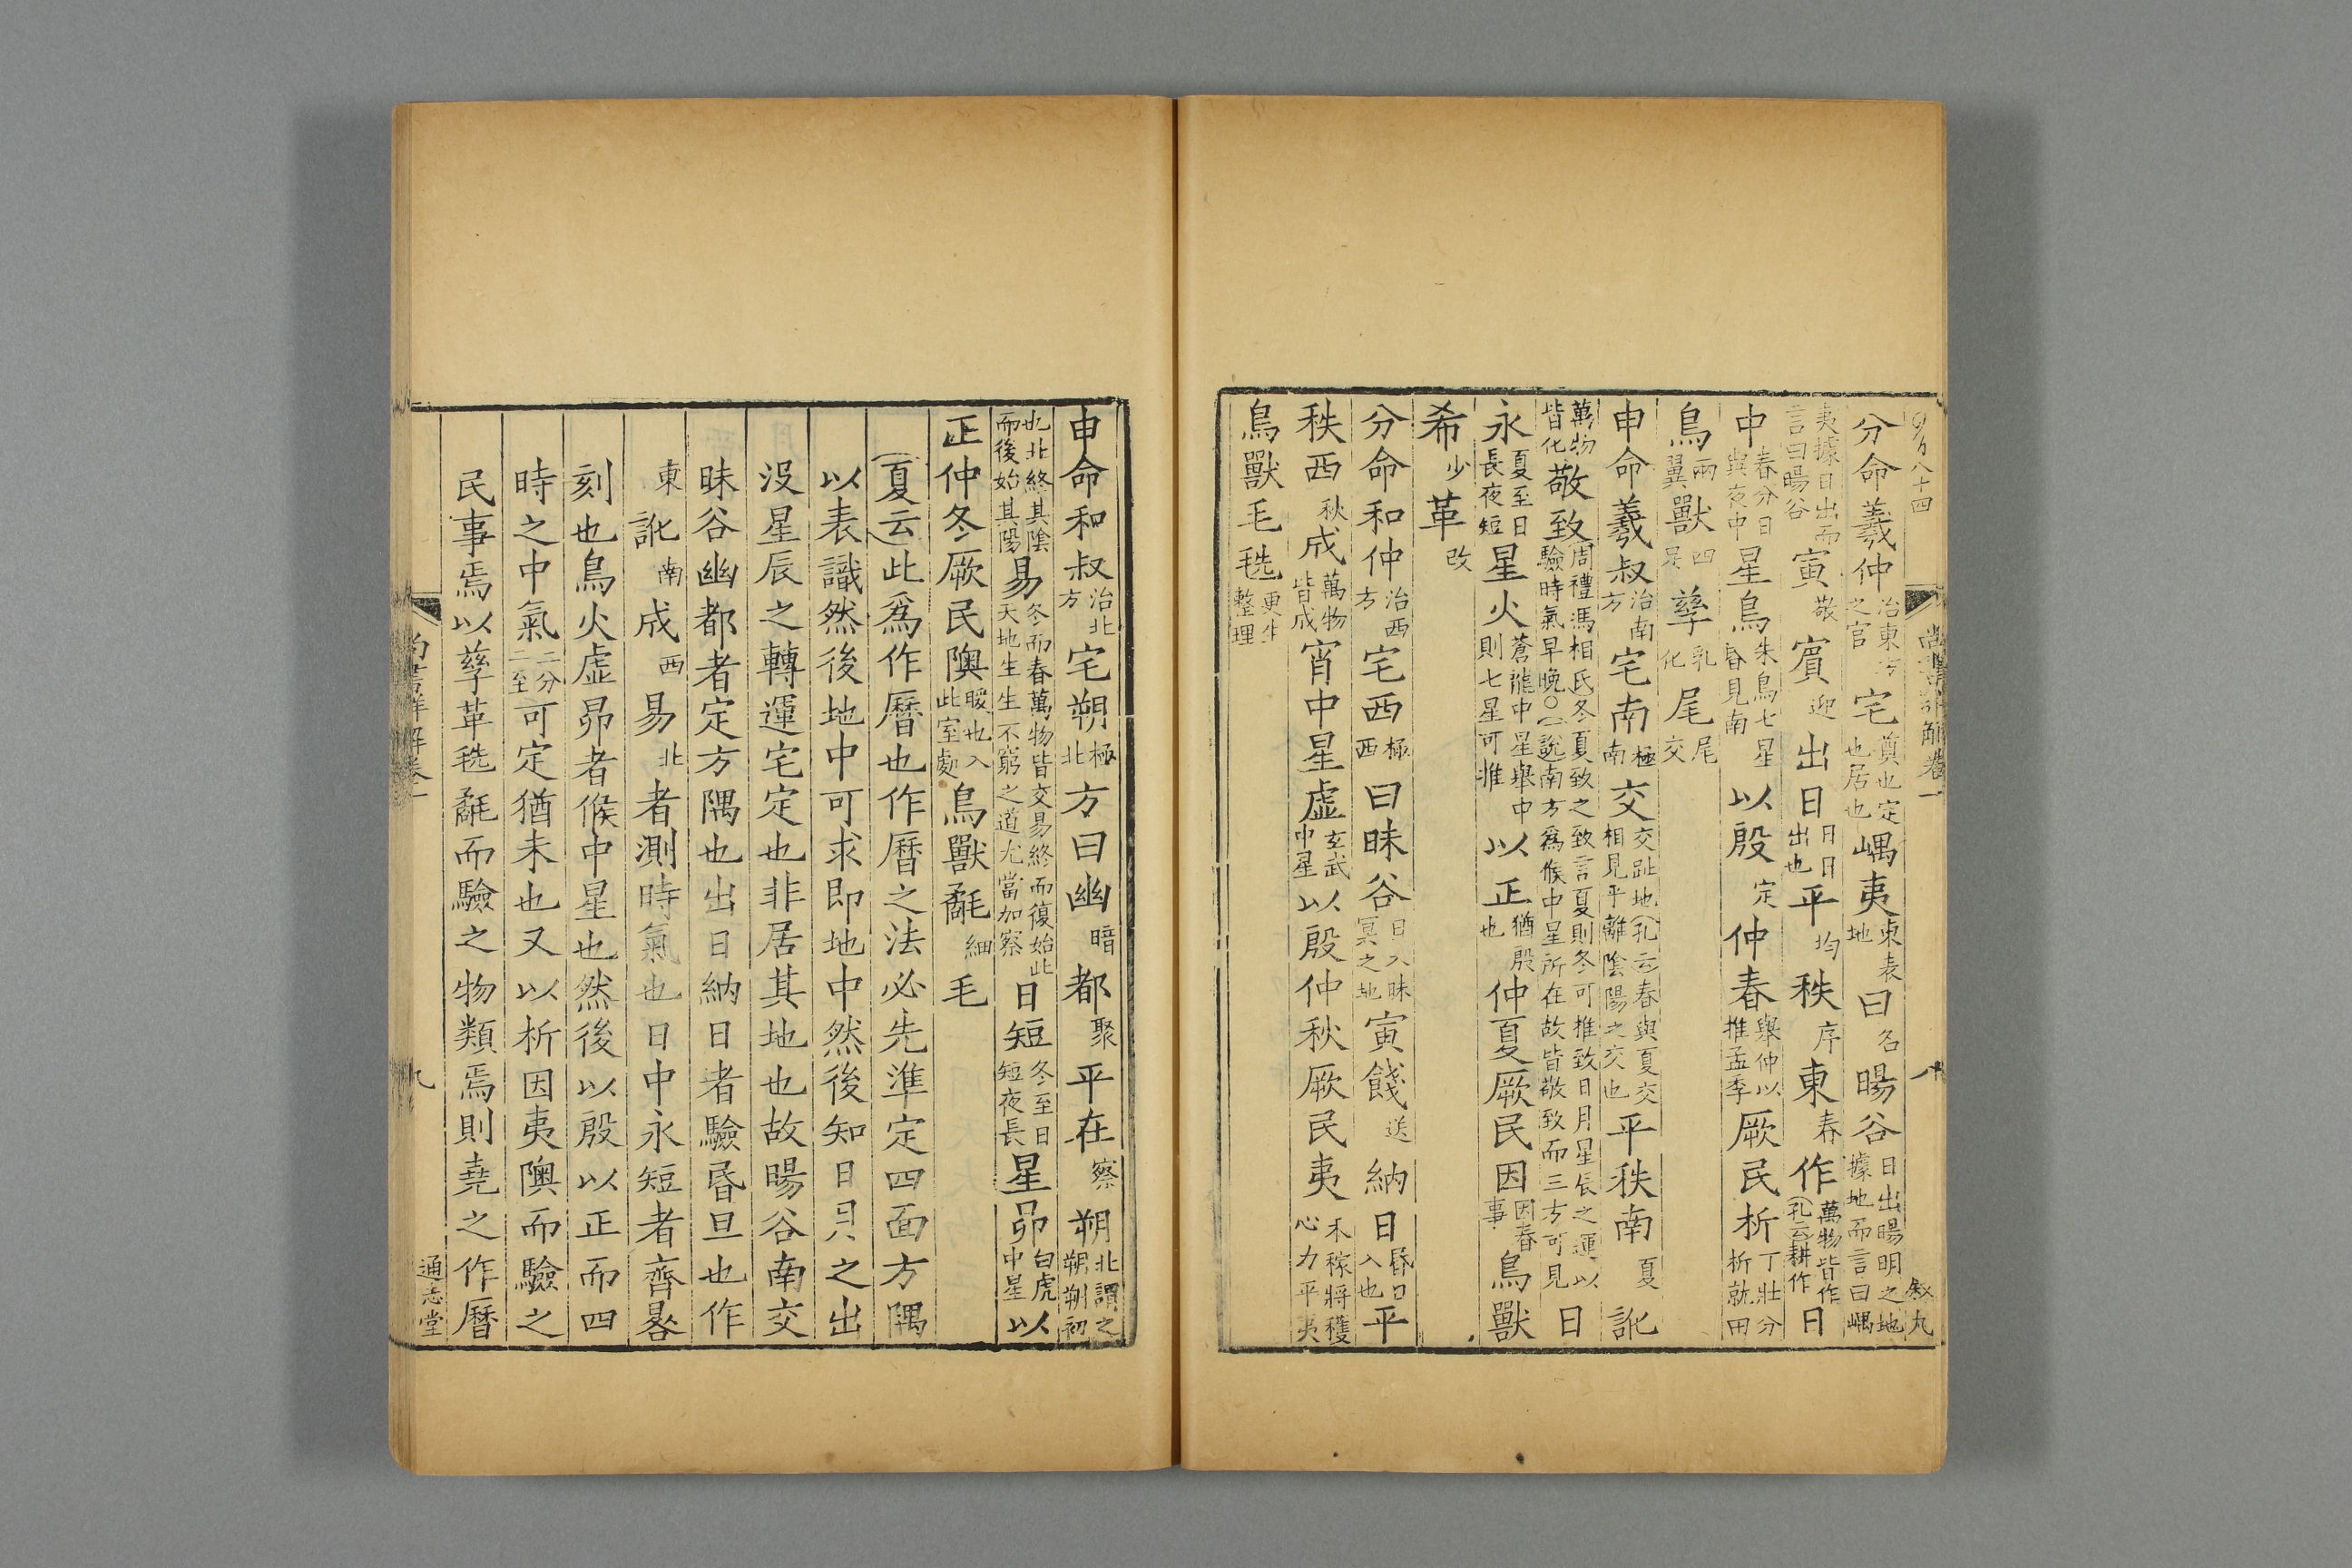 分命羲仲治東方之官宅奠也定也居也嵎夷東表地曰名暘谷日出暘明之地據地而言曰嵎
夷據日出而言曰暘谷寅敬賓迎出日日日出也平均秩序東春作萬物皆作(孔云耕作日
中春分日與夜中星鳥朱鳥七星昏見南以殷定仲春舉仲以推孟季厥民析丁壯分析就田
鳥兩翼獸四足孳乳化尾尾交
申命羲叔治南方宅南極南交交趾地(孔云春與夏交相見乎離陰陽之交也平秩南夏訛
萬物皆化敬致周禮馮相氏冬夏致之致言夏則冬可推致日月星辰之運以驗時氣早晚○(說南方爲候中星所在故皆敬致而三方可見日
永夏至日長夜短星火蒼龍中星舉中則七星可推以正猶殷也仲夏厥民因因春事鳥獸
希少革改
分命和仲治西方宅西極西曰昧谷日入昧冥之地寅餞送納日昏日入也平
秩西秋成萬物皆成宵中星虛玄武中星以殷仲秋厥民夷禾稼將穫心力平夷
鳥獸毛毨更生整理
尚書詳解卷一
八
申命和叔治北方宅朔極北方曰幽暗都聚平在察朔北謂之朔朔初
也北終其陰而後始其陽易冬而春萬物皆交易終而復始此天地生生不窮之道尤當加察日短冬至日短夜長星昴白虎中星以
正仲冬厥民隩暖也入此室處鳥獸氄細毛
(夏云此爲作曆也作曆之法必先準定四面方隅
以表識然後地中可求即地中然後知日月之出
没星辰之轉運宅定也非居其地也故暘谷南交
昧谷幽都者定方隅也出日納日者驗昬旦也作
東訛南成西易北者測時氣也日中永短者齊晷
刻也鳥火虛昴者候中星也然後以殷以正而四
時之中氣二分二至可定猶未也又以析因夷隩而驗之
民事焉以孳革毨氄而驗之物類焉則堯之作曆
尚書詳解卷一
九
通志堂